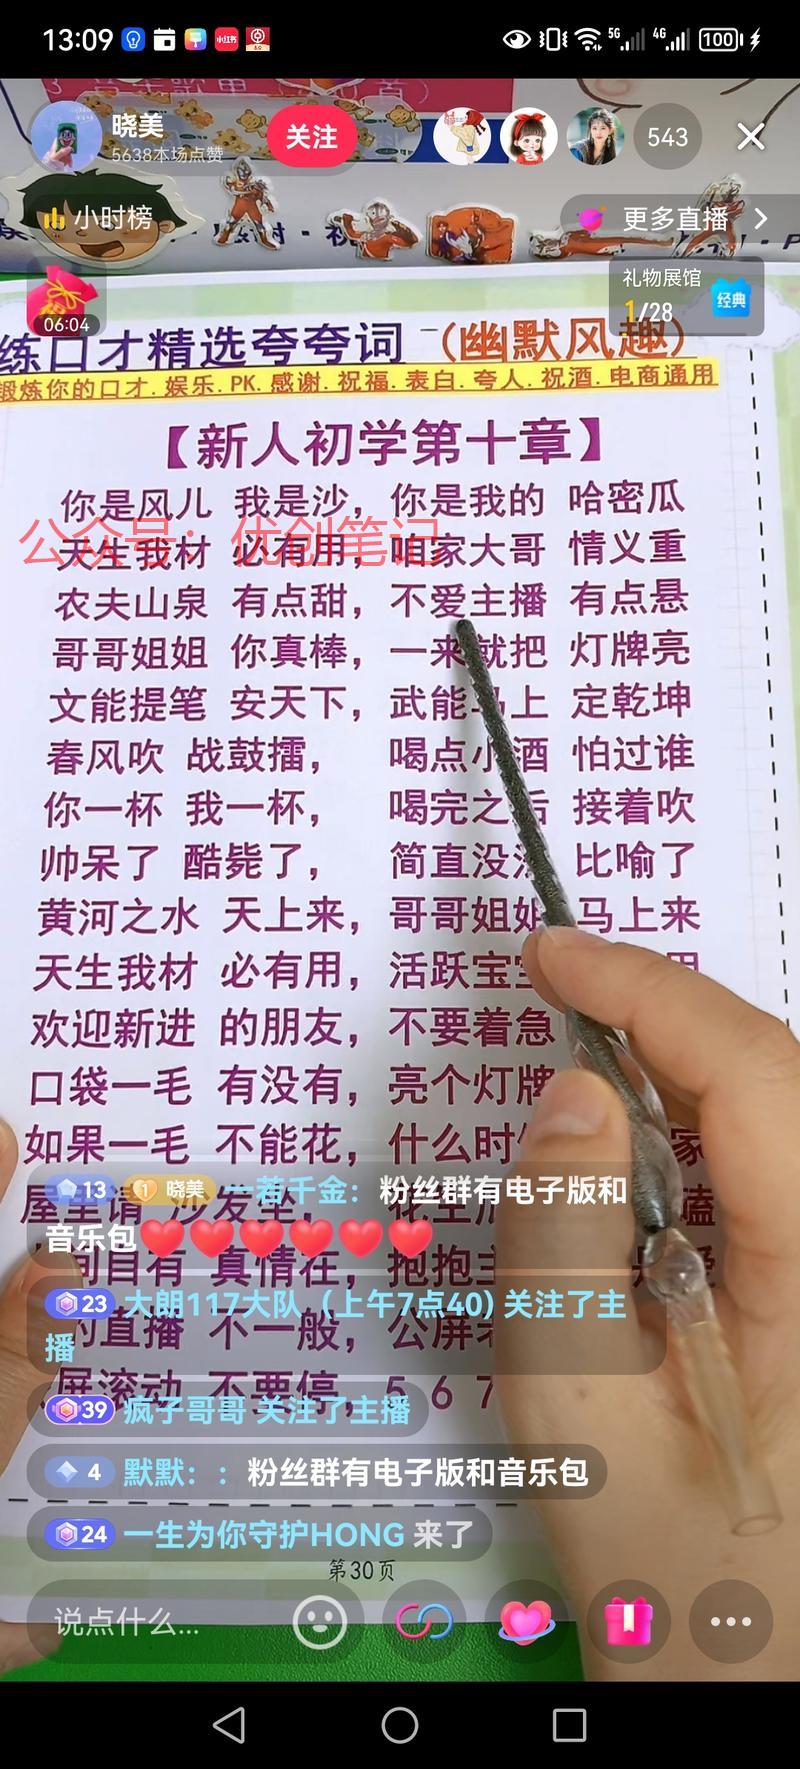 13:09
5G
4G
100
晓美
5638本场点赞
关注
543
小时榜
更多直播
06:04
礼物展馆
1/28
经典
练口才精选夸夸词 (幽默风趣)
锻炼你的口才.娱乐.PK.感谢.祝福.表白.夸人.祝酒.电商通用
【新人初学第十章】
你是风儿 我是沙，你是我的 哈密瓜
公众号：优创笔记
天生我材 必有用，咱家大哥 情义重
农夫山泉 有点甜，不爱主播 有点悬
哥哥姐姐 你真棒，一来就把 灯牌亮
文能提笔 安天下，武能马上 定乾坤
春风吹 战鼓擂， 喝点小酒 怕过谁
你一杯 我一杯， 喝完之后 接着吹
帅呆了 酷毙了， 简直没法 比喻了
黄河之水 天上来，哥哥姐姐 马上来
天生我材 必有用，活跃宝宝
欢迎新进 的朋友，不要着急
口袋一毛 有没有，亮个灯牌
如果一毛 不能花，什么时 家
屋里请 沙发坐， 嗑
13 1 晓美 一若千金：粉丝群有电子版和
音乐包
间自有 真情在，抱抱
23 大朗117大队（上午7点40) 关注了主
播
的直播 不一般，公屏
屏滚动 不要停，5 6 7
39 疯子哥哥 关注了主播
4 默默：：粉丝群有电子版和音乐包
24 一生为你守护HONG 来了
第30页
说点什么...